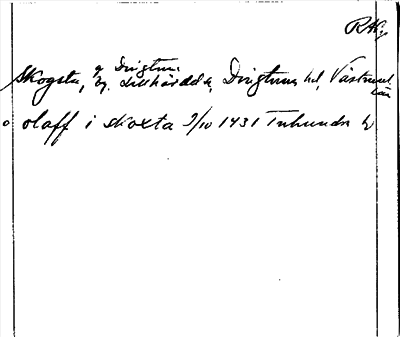 RAp
Skogsta,
Dingtuna
Lillhärdd, Dingtuna hd, Västmanl
län
olaff i skoxta 9/10 1431 Tuhundra h